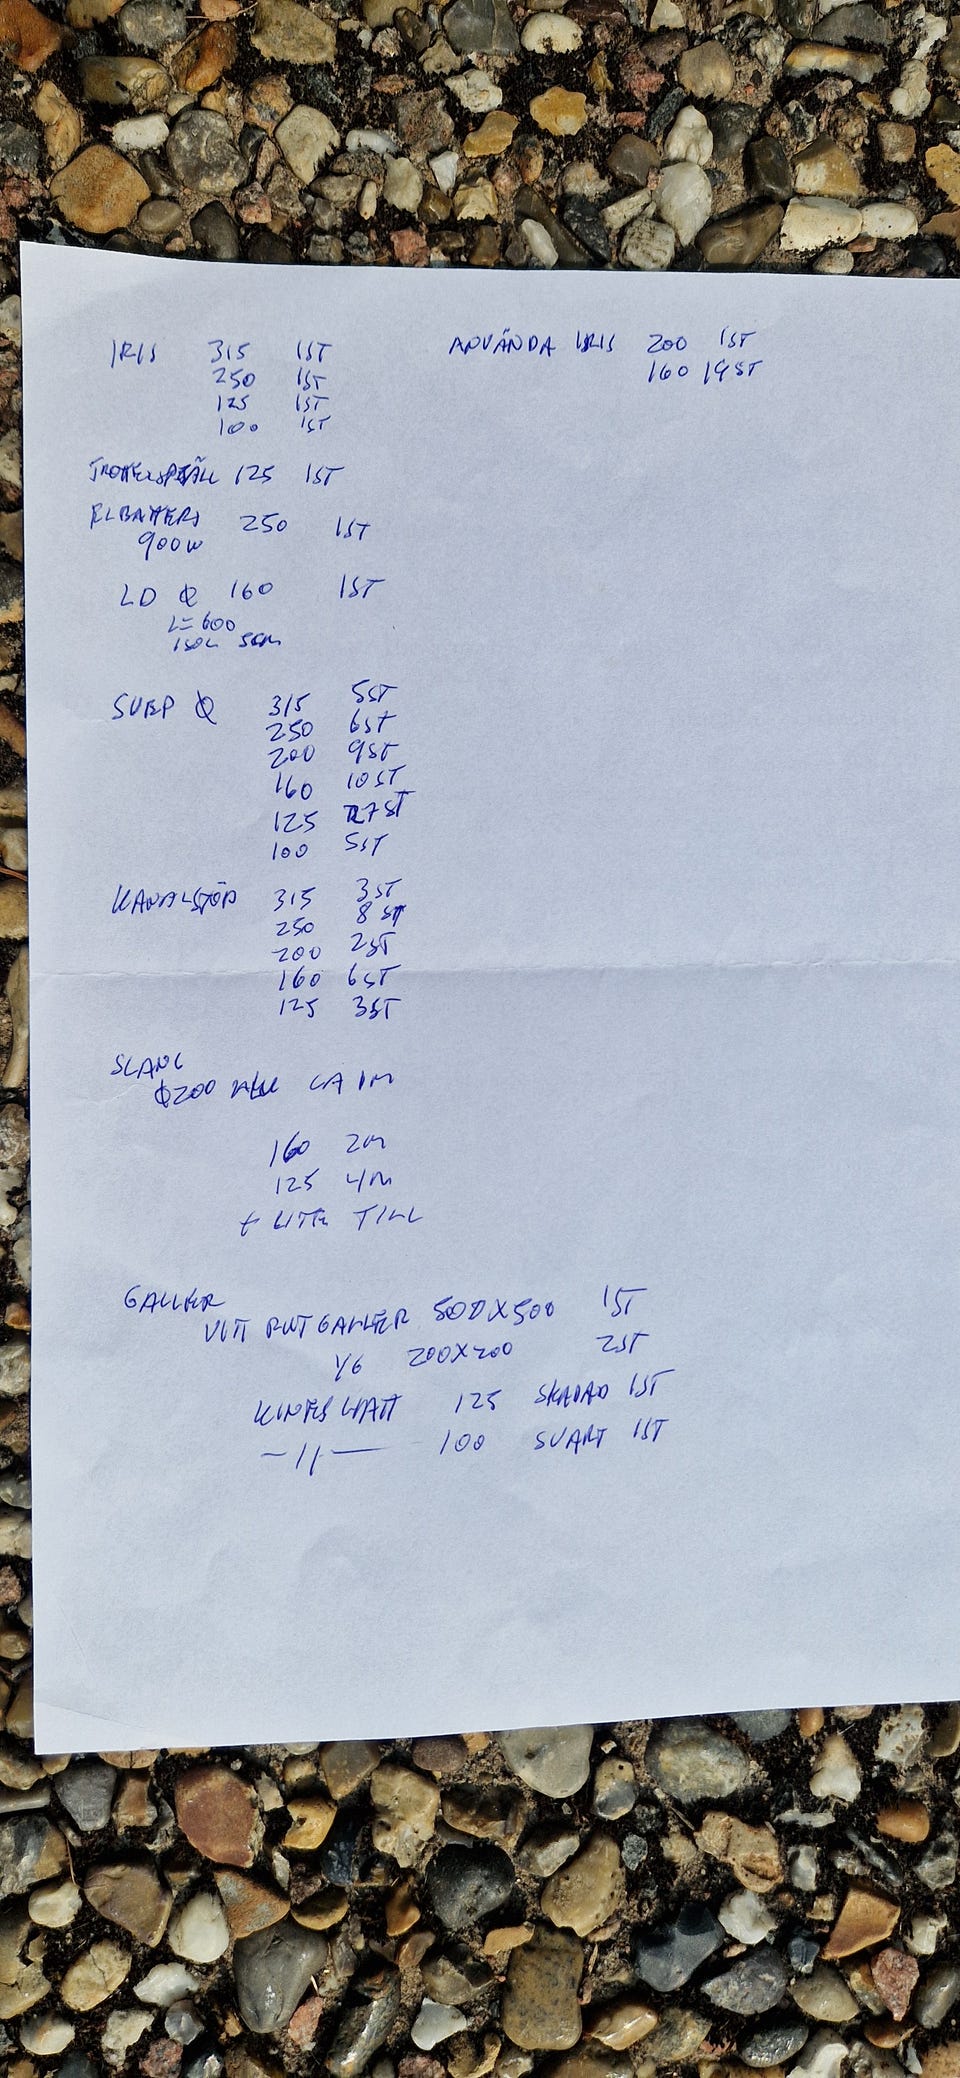 IRIS 315 1ST
250 1ST
125 1ST
100 1ST
ANVÄNDA IRIS 200 1ST
160 19ST
125 1ST
ELBATTERI 250 1ST
900W
LD Ø 160 1ST
L=600
ISOL
SVEP Ø 315 5ST
250 6ST
200 9ST
160 10ST
125 27ST
100 5ST
KANALSTÖD 315 3ST
250 8ST
200 2ST
160 6ST
125 3ST
SLANG
Ø200 CA 1M
160 2M
125 4M
+ LITE TILL
GALLER
VITT GALLER 500X500 1ST
200X200 2ST
125 SKADAD 1ST
-11- 100 SVART 1ST